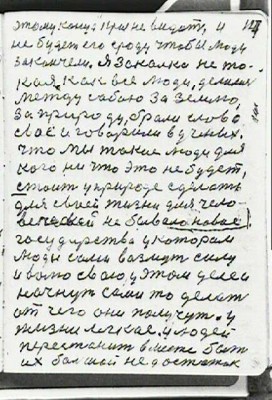 этому концу. При не видать, и
не будет его сроду чтобы люди
закончели. Я закалка не та-
кая. Как все люди, делили
между сабою За Землю,
За природу, брали слово
сваё и говорили в ученых.
что мы такие люди для
кого ни что это не будет,
стоит у природе сделать
для своей жизни для чело-
веческай не бывало новае
государства у котором
люди сами возмут силу
и волю сваю, у этом деле
начнут сами то делат
от чего они получут. у
жизни легкае, и людей
перестанит вместе быть
их большой недостаток